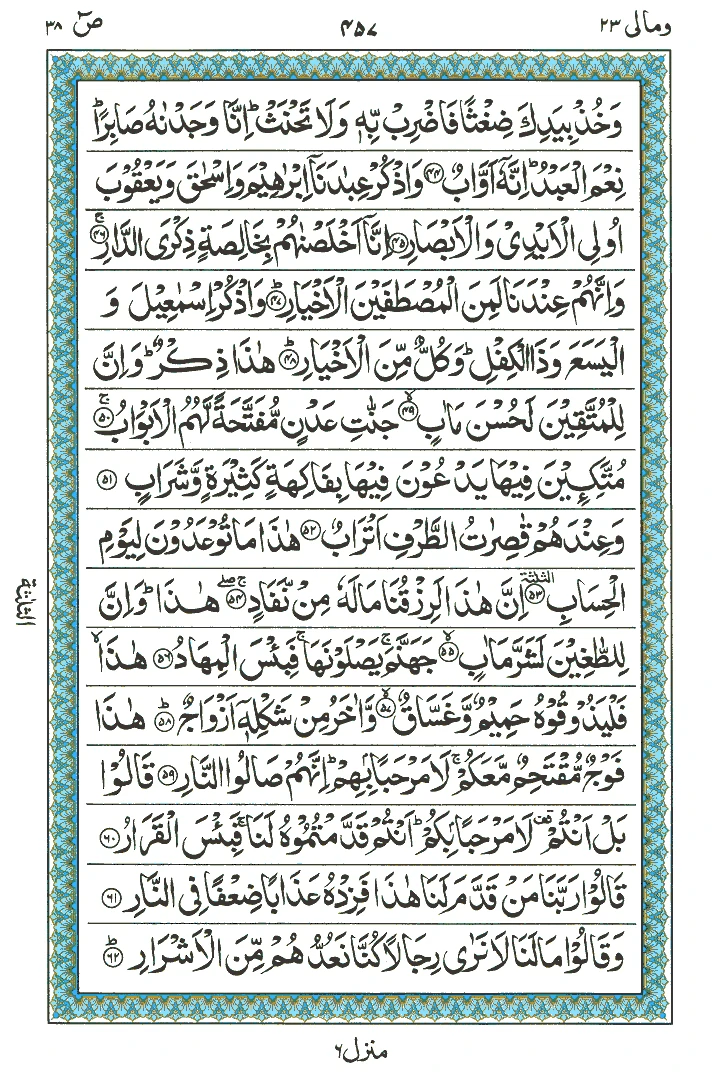 ومالی ٢٣ ۴۵۷ صٓ ٣٨
وَخُذْ بِيَدِكَ ضِغْثًا فَاضْرِبْ بِّهٖ وَلَا تَحْنَثْ ؕ اِنَّا وَجَدْنٰهُ صَابِرًا ؕ
نِعْمَ الْعَبْدُ ؕ اِنَّهٗۤ اَوَّابٌ ﴿۴۴﴾ وَاذْكُرْ عِبٰدَنَاۤ اِبْرٰهِيْمَ وَاِسْحٰقَ وَيَعْقُوْبَ
اُولِی الْاَيْدِیْ وَالْاَبْصَارِ ﴿۴۵﴾ اِنَّاۤ اَخْلَصْنٰهُمْ بِخَالِصَةٍ ذِكْرَی الدَّارِ ۚ ﴿۴۶﴾
وَاِنَّهُمْ عِنْدَنَا لَمِنَ الْمُصْطَفَيْنَ الْاَخْيَارِ ؕ ﴿۴۷﴾ وَاذْكُرْ اِسْمٰعِيْلَ وَ
الْيَسَعَ وَذَا الْكِفْلِ ؕ وَكُلٌّ مِّنَ الْاَخْيَارِ ؕ ﴿۴۸﴾ هٰذَا ذِكْرٌ ؕ وَاِنَّ
لِلْمُتَّقِيْنَ لَحُسْنَ مَاٰبٍ ۙ ﴿۴۹﴾ جَنّٰتِ عَدْنٍ مُّفَتَّحَةً لَّهُمُ الْاَبْوَابُ ۚ ﴿۵۰﴾
مُتَّكِـِٕيْنَ فِيْهَا يَدْعُوْنَ فِيْهَا بِفَاكِهَةٍ كَثِيْرَةٍ وَّشَرَابٍ ﴿۵۱﴾
وَعِنْدَهُمْ قٰصِرٰتُ الطَّرْفِ اَتْرَابٌ ﴿۵۲﴾ هٰذَا مَا تُوْعَدُوْنَ لِيَوْمِ
الْحِسَابِ ﴿۵۳﴾ اِنَّ هٰذَا لَرِزْقُنَا مَا لَهٗ مِنْ نَّفَادٍ ۚۖ ﴿۵۴﴾ هٰذَا ؕ وَاِنَّ
لِلطّٰغِيْنَ لَشَرَّ مَاٰبٍ ۙ ﴿۵۵﴾ جَهَنَّمَ ۚ يَصْلَوْنَهَا ۚ فَبِئْسَ الْمِهَادُ ﴿۵۶﴾ هٰذَا ۙ
فَلْيَذُوْقُوْهُ حَمِيْمٌ وَّغَسَّاقٌ ۙ ﴿۵۷﴾ وَّاٰخَرُ مِنْ شَكْلِهٖۤ اَزْوَاجٌ ؕ ﴿۵۸﴾ هٰذَا
فَوْجٌ مُّقْتَحِمٌ مَّعَكُمْ ۚ لَا مَرْحَبًۢا بِهِمْ ؕ اِنَّهُمْ صَالُوا النَّارِ ﴿۵۹﴾ قَالُوْا
بَلْ اَنْتُمْ ۟ لَا مَرْحَبًۢا بِكُمْ ؕ اَنْتُمْ قَدَّمْتُمُوْهُ لَنَا ۚ فَبِئْسَ الْقَرَارُ ﴿۶۰﴾
قَالُوْا رَبَّنَا مَنْ قَدَّمَ لَنَا هٰذَا فَزِدْهُ عَذَابًا ضِعْفًا فِی النَّارِ ﴿۶۱﴾
وَقَالُوْا مَا لَنَا لَا نَرٰی رِجَالًا كُنَّا نَعُدُّهُمْ مِّنَ الْاَشْرَارِ ؕ ﴿۶۲﴾
منزل ۶